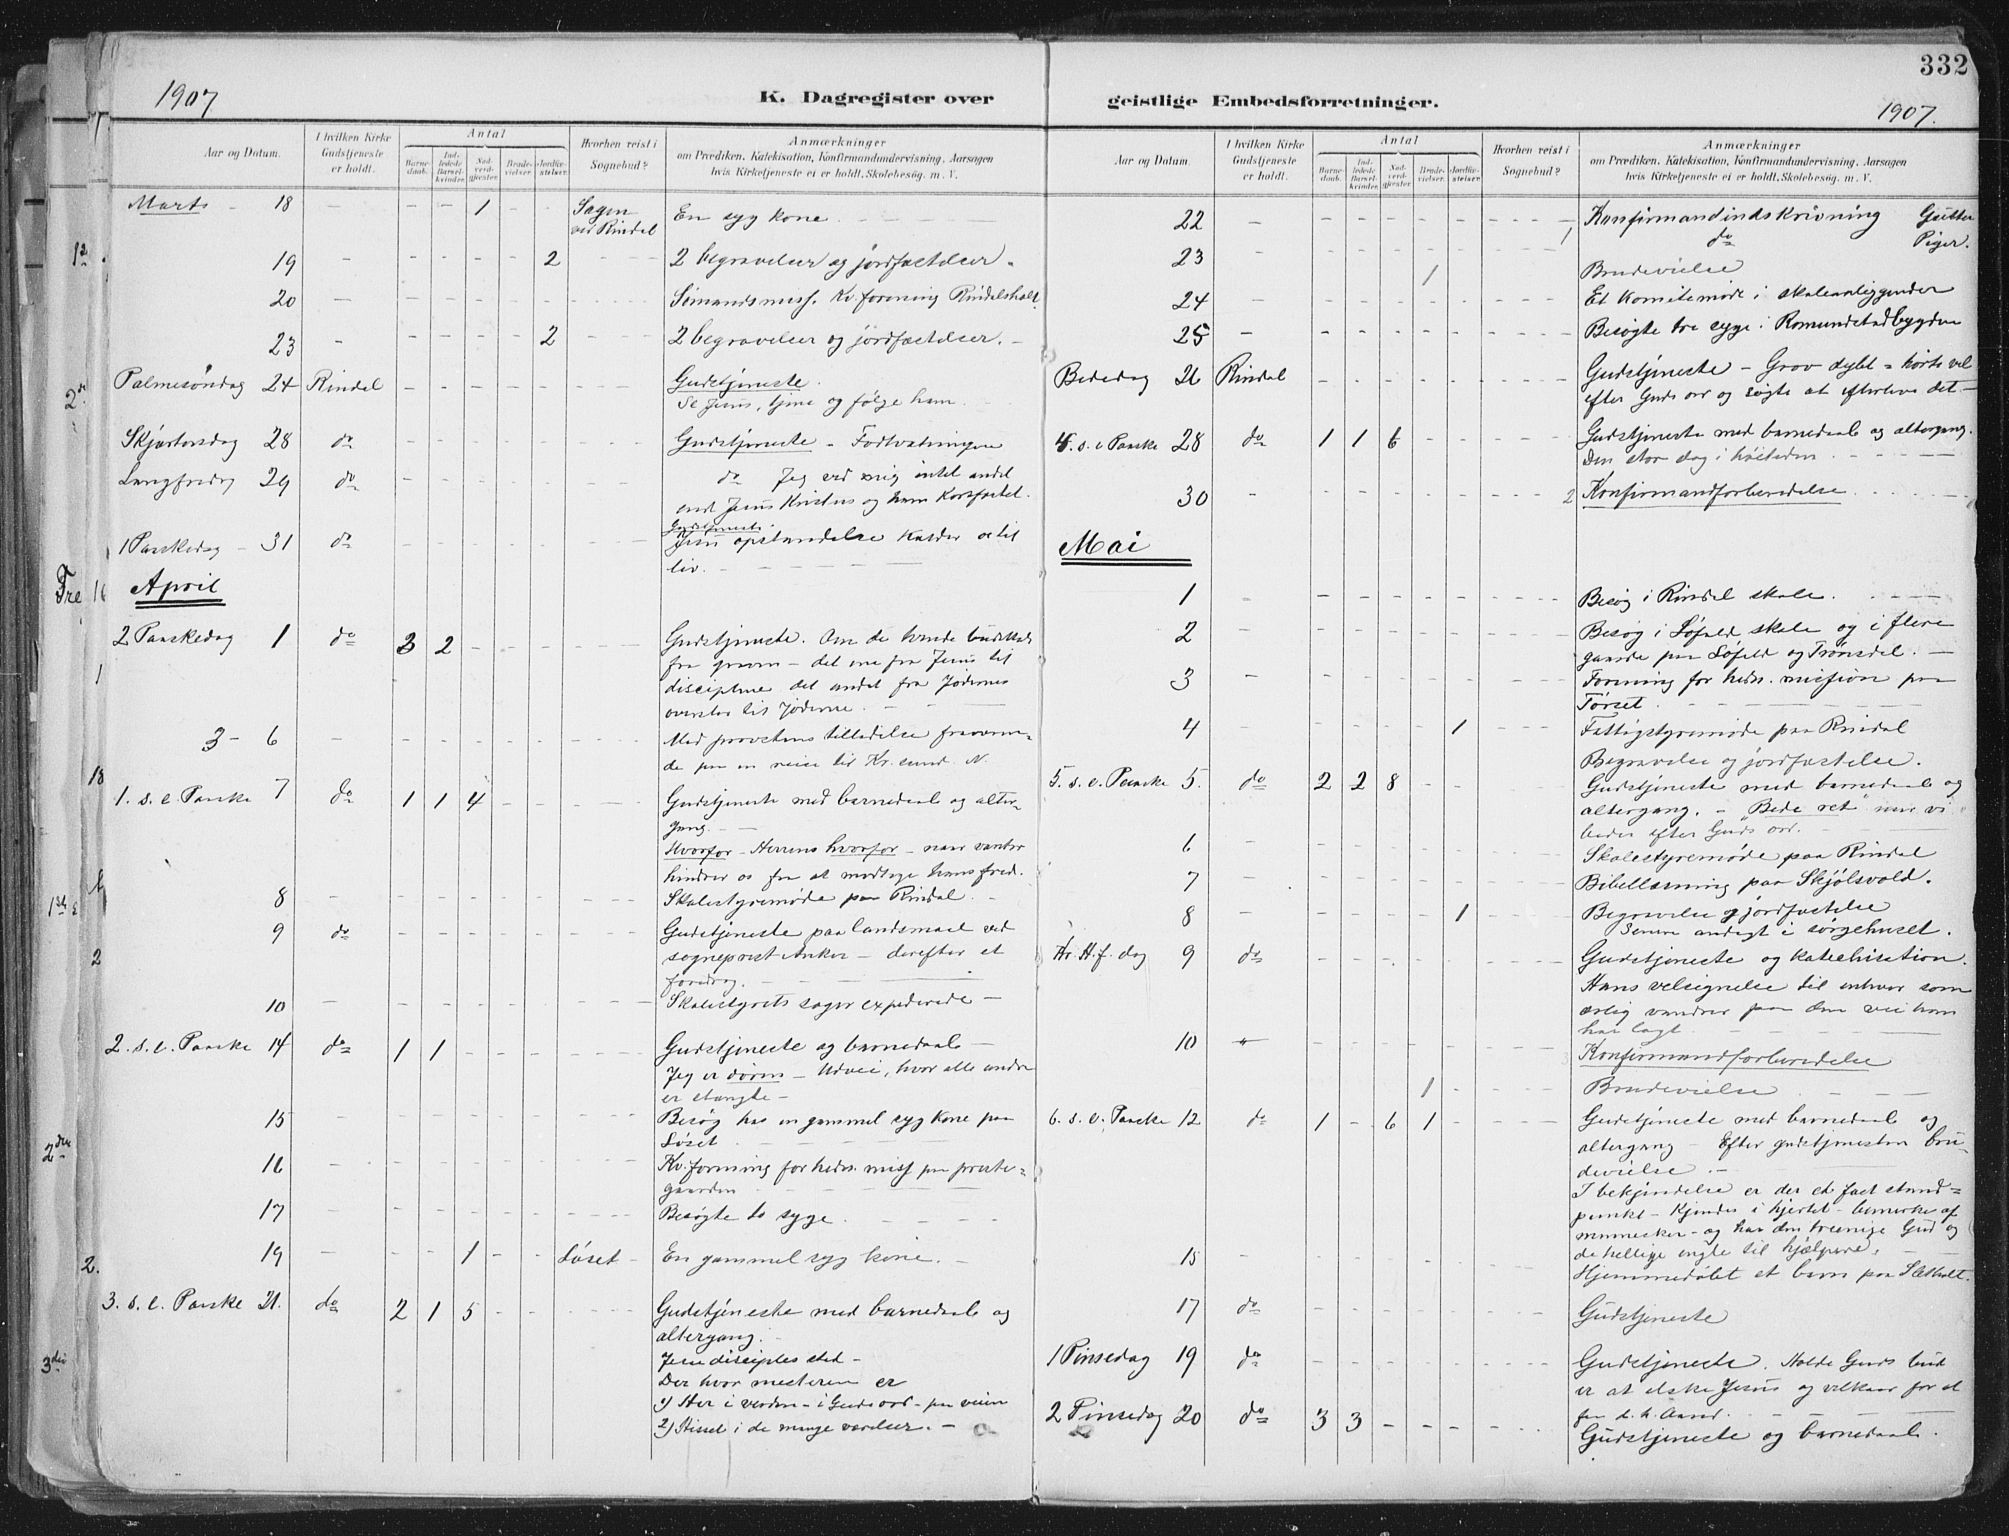 332
1907
K. Dagregister over
geistlige Embedsforretninger.
1907.
Aar og Datum.
I hvilken Kirke Gudstjeneste er holdt.
Antal
Barnedaab.
Indledede Barselkvinder.
Nadverdgjester.
Brudevielser.
Jordfæstelser.
Hvorhen reist i Sognebud?
Anmærkninger
om Prædiken, Katekisation, Konfirmandundervisning, Aarsagen
hvis Kirketjeneste ei er holdt, Skolebesøg. m. V.
Marts 18 - - - 1 - - Sagen ved Rindal En syg kone
19 - - - - - 2 2 begravelser og jordfæstelser.
20 Sømandsmiss. Kv.forening Rindalsholt
23 - - - - - 2 2 begravelser og jordfæstelser.
Palmesøndag 24 Rindal Gudstjeneste.
Se Jesus, tjene og følge ham
Skjærtorsdag 28 do Gudstjeneste - Fodtvætningen
Langfredag 29 do do Jeg ved mig intet andet
end Jesus Kristus og ham korsfæstet.
Gudstjeneste.
1 Paaskedag 31 do Jesu opstandelse kalder os til
liv.
April
2 Paaskedag 1 do 3 2 Gudstjeneste. Om de tvende budskab
fra graven - det ene fra Jesus til
disciplene det andet fra Jødernes
øverster til Jøderne.
3 - 6 Med provstens tilladelse fraværen-
de paa en reise til Kr.sund. N.
1. s. e. Paaske 7 do 1 1 4 Gudstjeneste med barnedaab og alter-
gang.
Hvorfor - Herrens hvorfor - naar vantro
hindrer os fra at modtage hans fred.
8 Skolestyremøde paa Rindal.
9 do Gudstjeneste paa landsmaal ved
sogneprest Anker - derefter et
foredrag.
10 Skolestyrets sager expederede -
2. s. e. Paaske 14 do 1 1 Gudstjeneste og barnedaab -
Jeg er døren - Udvei, hvor alle andre
er stængte -
15 Besøg hos en gammel syg kone paa
Løset
16 Kv.forening for hedn. miss paa preste-
gaarden
17 Besøgte to syge.
19 - - - 1 - - Løset En gammel syg kone.
3. s. e. Paaske 21. do 2 1 5 Gudstjeneste med barnedaab og
altergang.
Jesu disciples sted -
Der hvor mesteren er
1) Her i verden - i Guds ord - paa veien
2) Hisset i de mange værelser. -
Aar og Datum
I hvilken Kirke Gudstjeneste er holdt.
Antal
Barnedaab.
Indledede Barselkvinder.
Nadverdgjester.
Brudevielser.
Jordfæstelser.
Hvorhen reist i Sognebud?
Anmærkninger
om Prædiken, Katekisation, Konfirmandundervisning, Aarsagen
hvis Kirketjeneste ei er holdt, Skolebesøg. m. V.
22 1 Konfirmandindskrivning Gutter
do Piger.
23 1 Brudevielse
24 Et komitemøde i skoleanliggender
25 Besøgte tre syge i Romundstadbygden
Bededag 26 Rindal Gudstjeneste - Grov dybt = hørte vel
efter Guds ord og søgte at efterleve det -
4. s. e. Paaske 28 do 1 1 6 Gudstjeneste med barnedaab og altergang.
Den store dag i høitiden
30 2 Konfirmandforberedelse
Mai
1 Besøg i Rindal skole.
2 Besøg i Løfald skole og i flere
gaarde paa Løfald og Trønsdal.
3 Forening for hedn. mission paa
Tørset.
4 1 Fattigstyremøde paa Rindal
Begravelse og jordfæstelse.
5. s. e. Paaske 5. do 2 2 8 Gudstjeneste med barnedaab og
altergang. - "Bede ret" naar vi
beder efter Guds ord.
6 Skolestyremøde paa Rindal
7 Bibellæsning paa Skjølsvold.
8 1 Begravelse og jordfæstelse
Senere andagt i sørgehuset.
Kr. H. f. dag 9 do Gudstjeneste og katechisation.
Hans velsignelse til enhver som
ærlig vandrer paa den vei han
har lagt
10 Konfirmandforberedelse
1 Brudevielse
6. s. e. Paaske 12 do 1 - 6 1 Gudstjeneste med barnedaab og
altergang - Efter gudstjenesten bru-
devielse. -
I bekjendelse er der et fast stand=
punkt - Kjendes i hjertet - bemærkes af
mennesker - og har den treenige Gud og
de hellige engle til hjælpere.
15 Hjemmedøbt et barn paa
17 do Gudstjeneste
1 Pinsedag 19 do Gudstjeneste. Holde Guds bud
er at elske Jesus og vilkaar for at
faa d. h. Aand.
2 Pinsedag 20 do 3 3 Gudstjeneste og barnedaab.